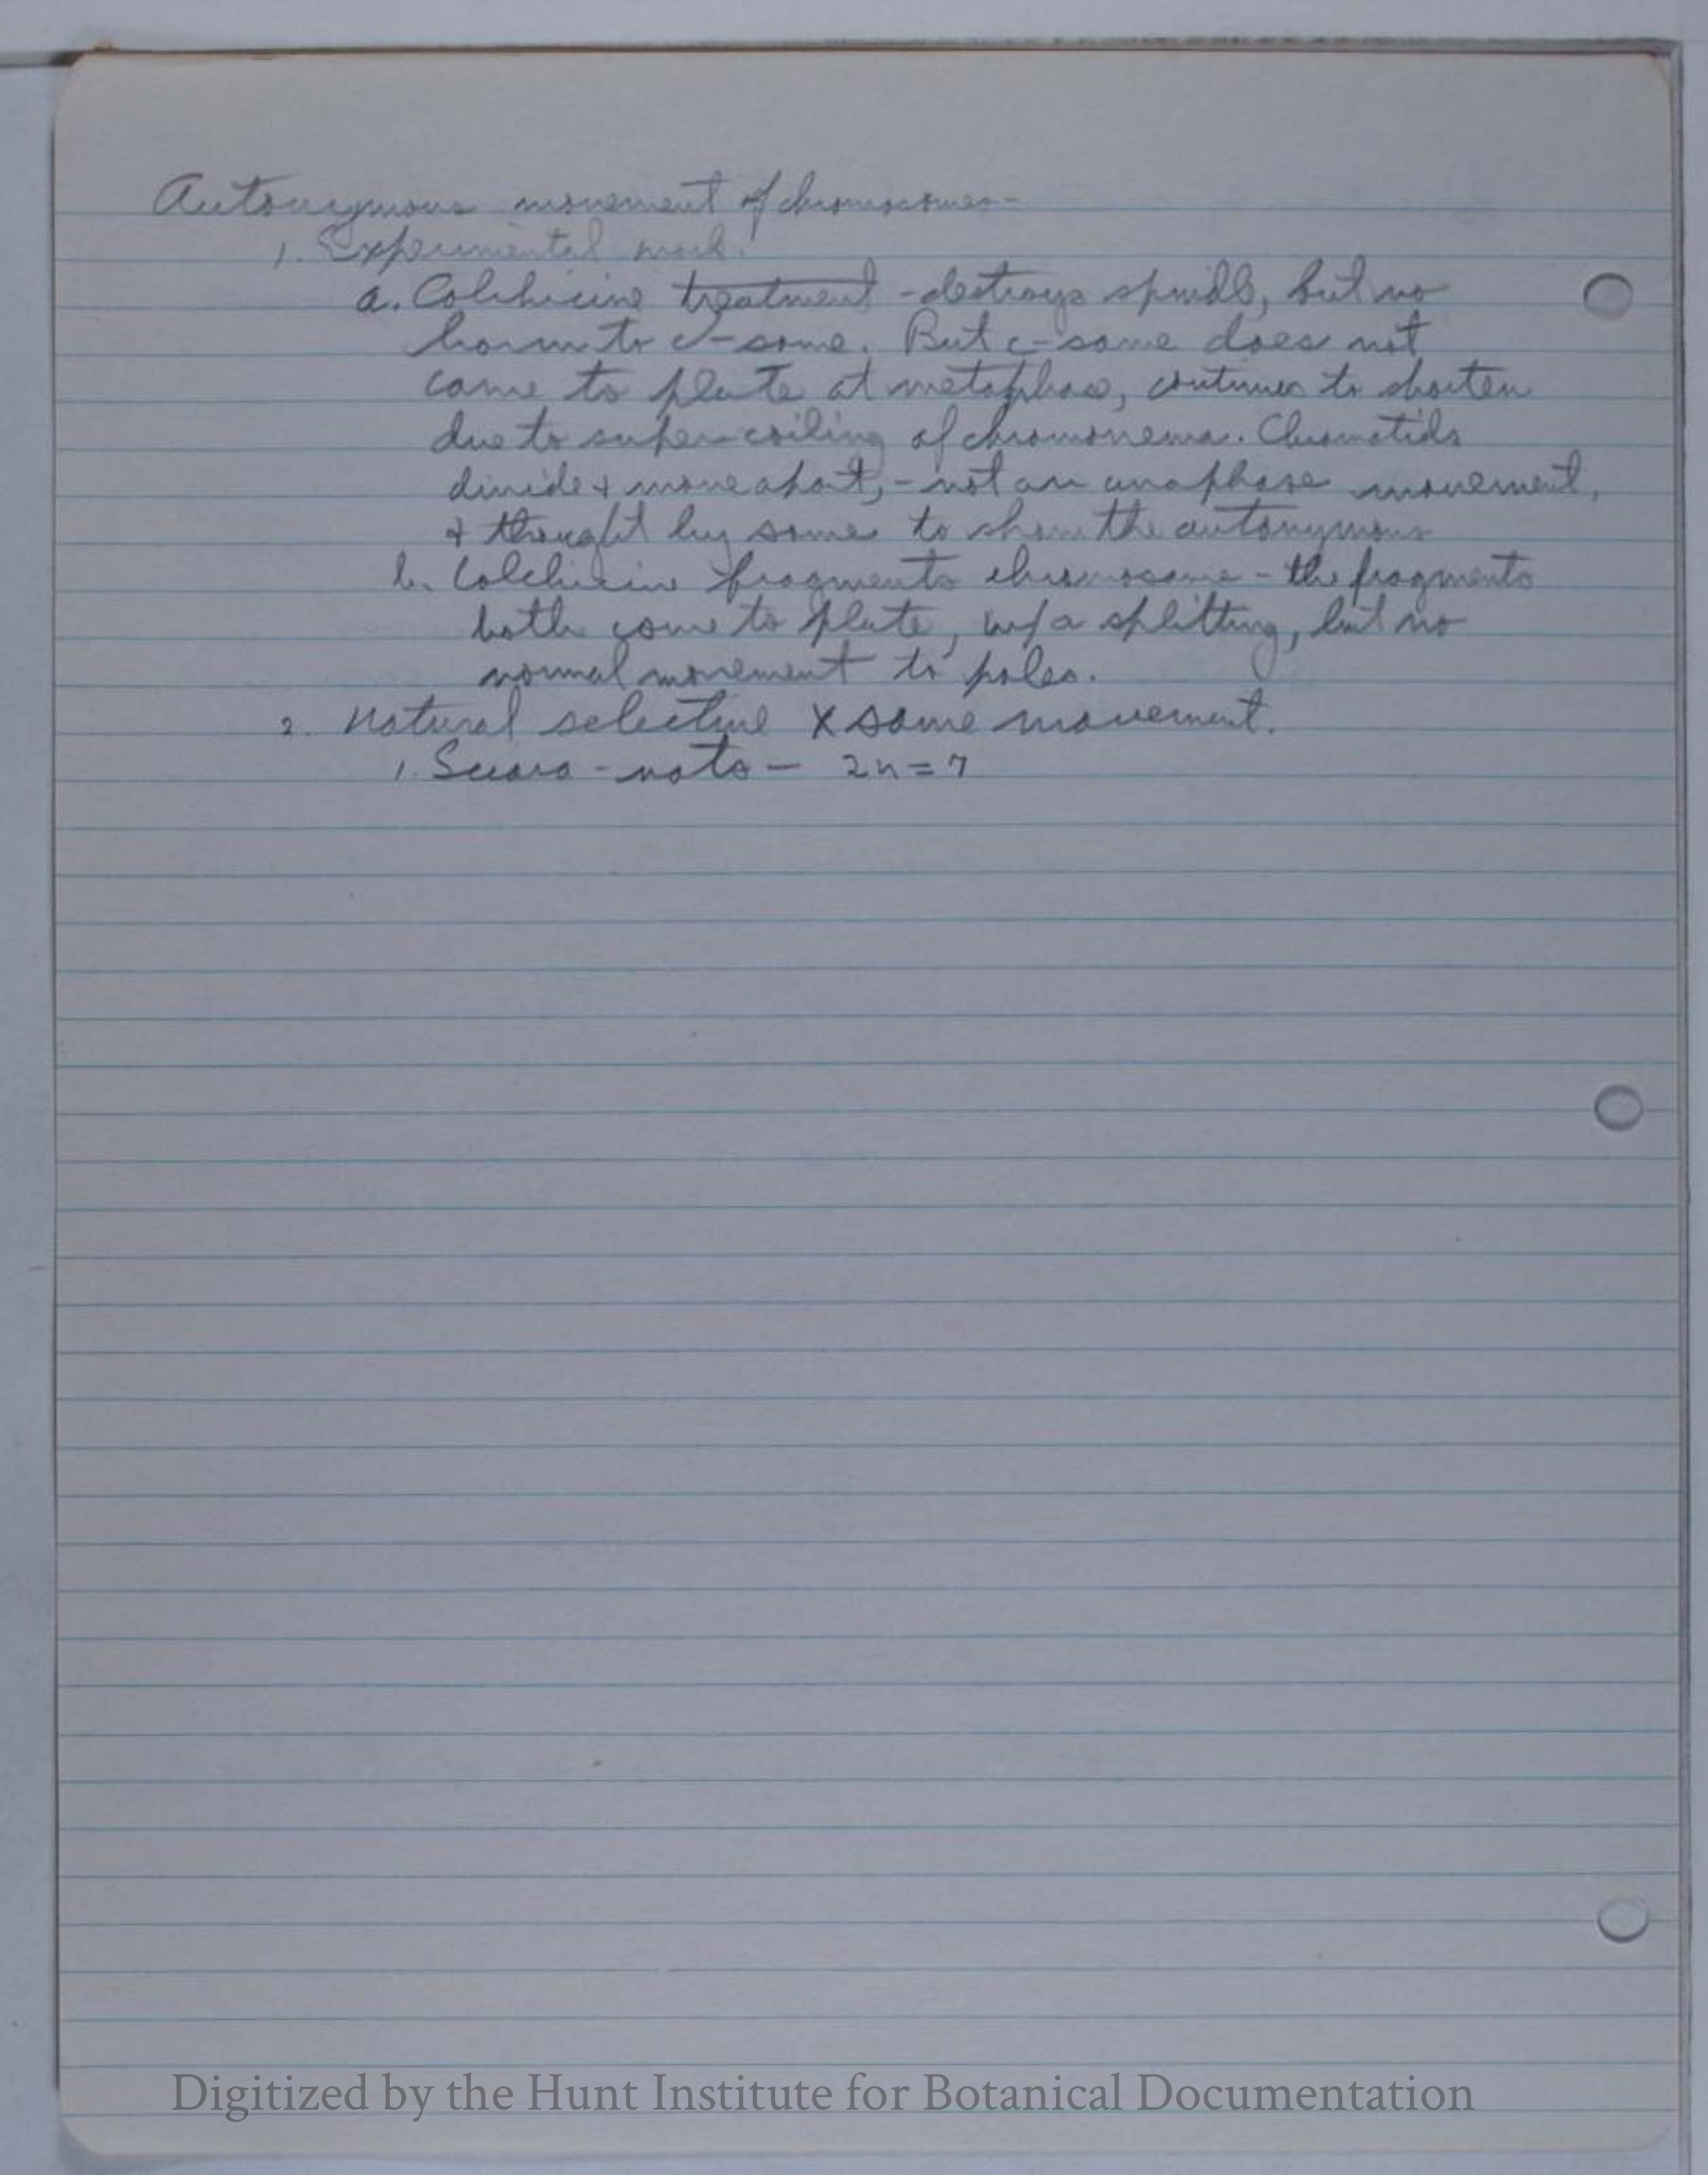 Autonymous movement of chromosomes-
1. Experimental work.
a. Colchicine treatment - destroys spindle, but no
harm to c-some. But c-some does not
come to plate at metaphase, continues to shorten
due to super coiling of chromonema. Chromatids
divide & move apart, - not an anaphase movement,
& thought by some to show the autonymous
b. Colchicine fragments chromosome - the fragments
both come to plate, w/a splitting, but no
normal movement to poles.
2. Natural selective X some movement.
1. - 2n=7
Digitized by the Hunt Institute for Botanical Documentation